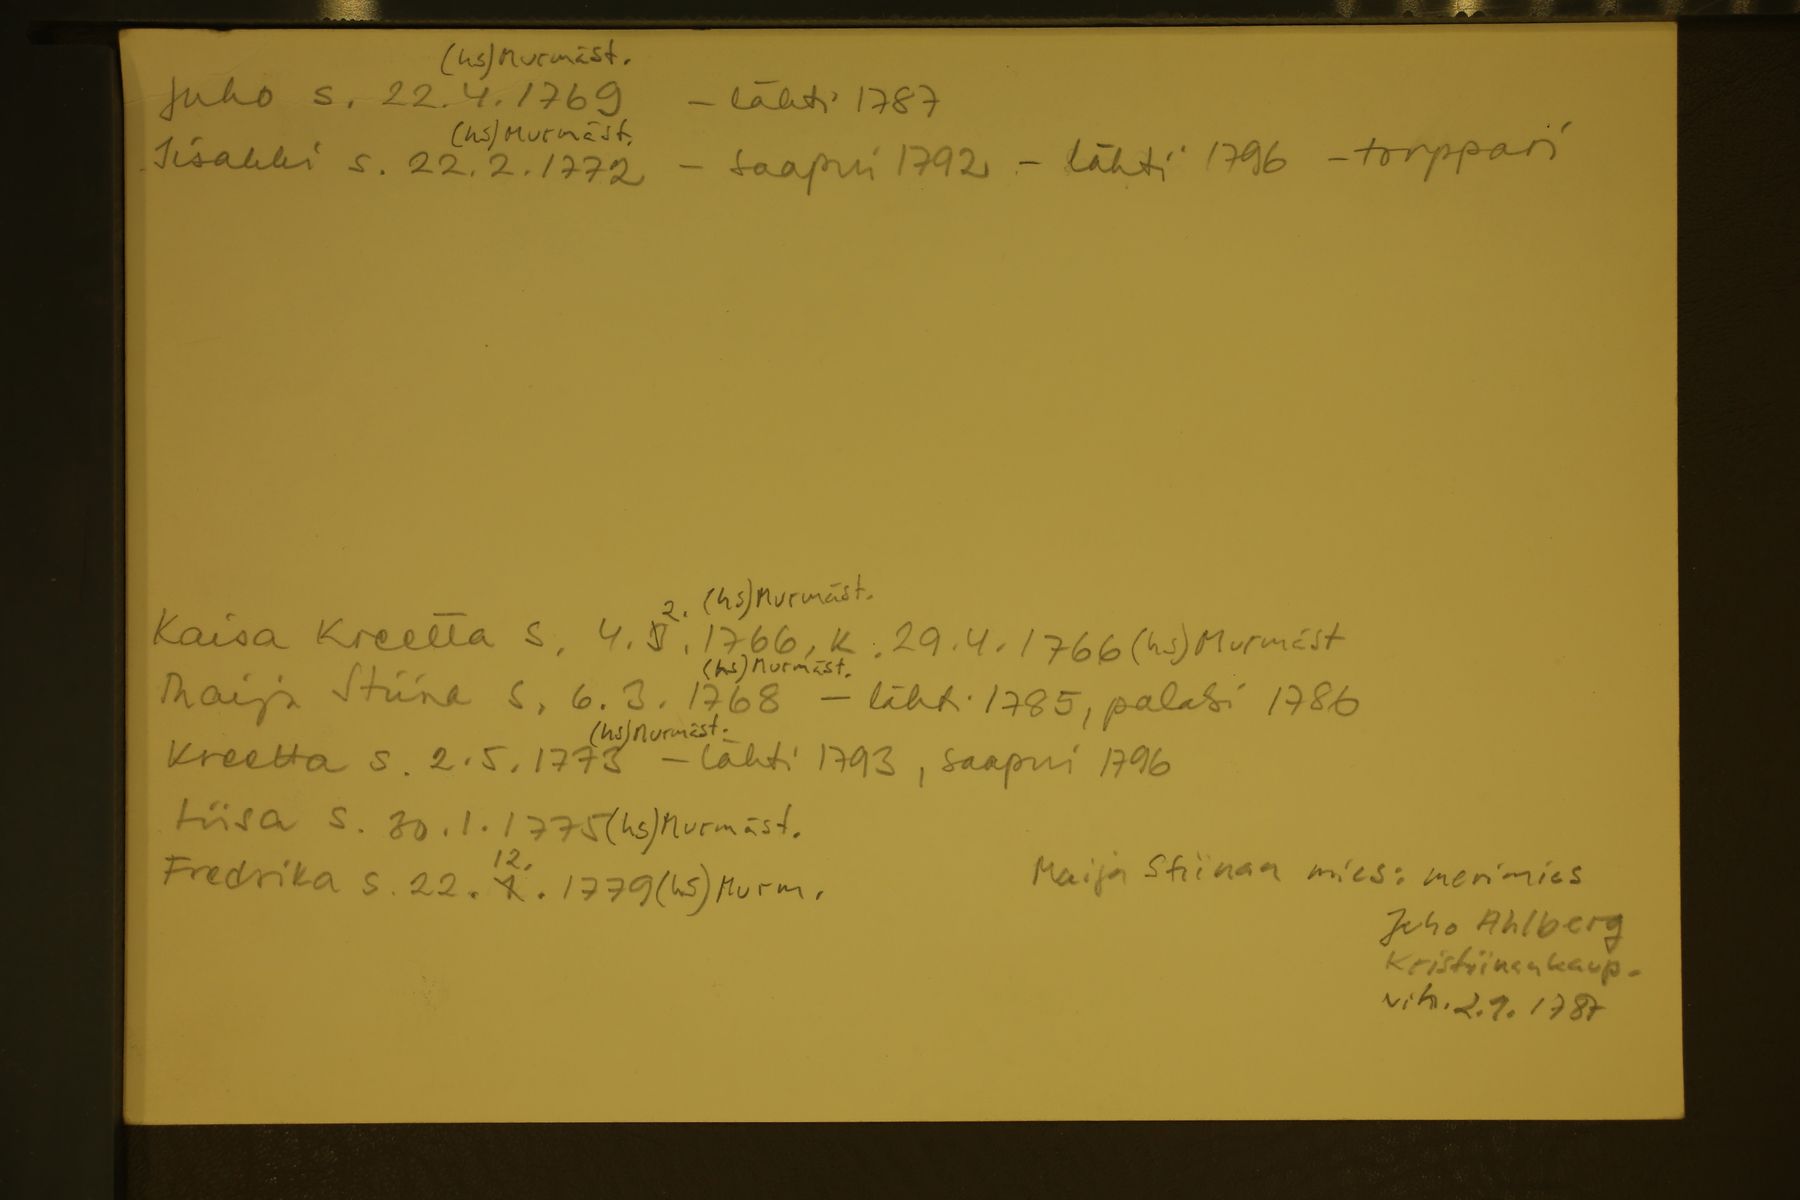 (hs) Murmäst.
Juho s. 22.4.1769 - lähti 1787
(hs) Murmäst.
Iisakki s. 22.2.1772 - saapui 1792 - lähti 1796 - torppari
2. (hs) Murmäst.
Kaisa Kreetta s. 4.5.1766, k. 29.4.1766 (hs) Murmäst
(hs) Murmäst.
Maija Stiina s. 6.3.1768 - läht. 1785, palasi 1786
(hs) Murmäst.
Kreetta s. 2.5.1773 - lähti 1793, saapui 1796
Liisa s. 30.1.1775 (hs) Murmäst.
12.
Fredrika s. 22. . 1779 (hs) Murm.
Maija Stiinan mies: merimies
Juho Ahlberg
Kristiinankaup.
vih. 2.9.1787